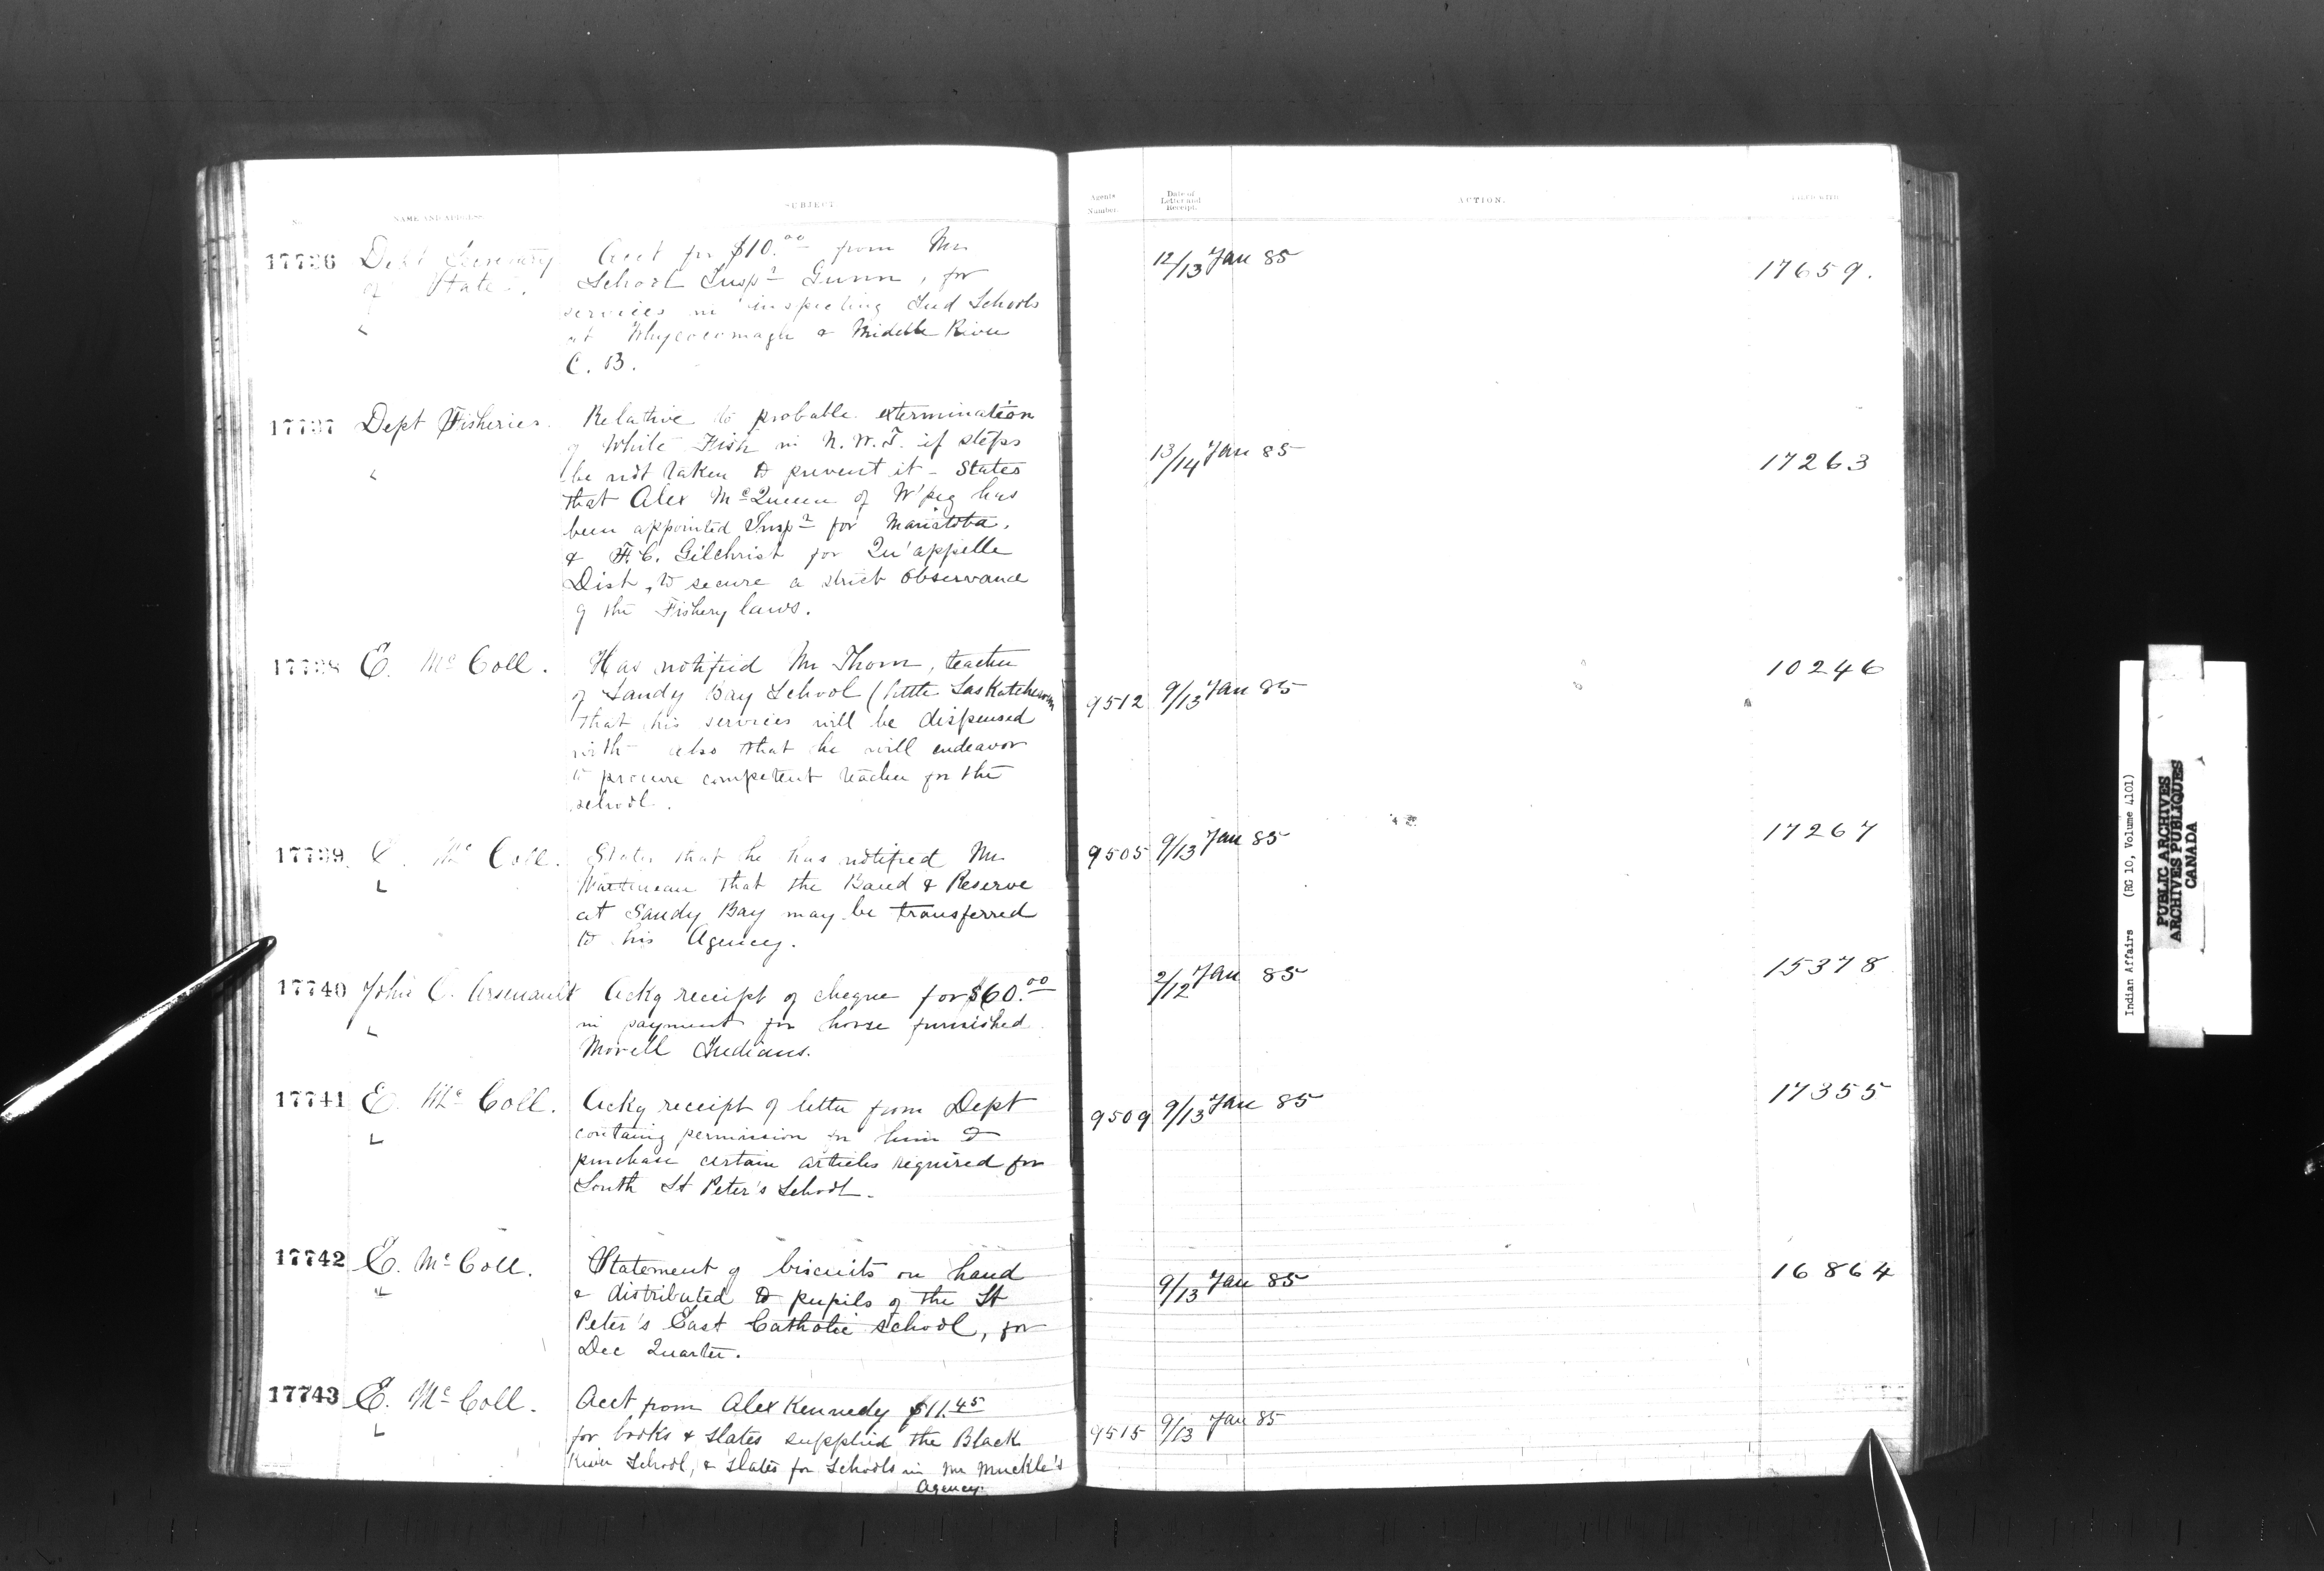 No.
NAME AND ADDRESS.
SUBJECT
Agents Number.
Date of Letter and Receipt.
ACTION.
FILED WITH
17736 Dept Secretary of State. Acct for $10.00 from Mr
School Inspr Gunn, for
services in inspecting Ind Schools
at Whycocomagh & Middle River
C. B.
12/13 Jan 85
17659.
17737 Dept Fisheries. Relative to probable extermination
of White Fish in N.W.T. if steps
be not taken to prevent it - States
that Alex McQueen of W'peg has
been appointed Inspr for Manitoba,
& F. C. Gilchrist for Qu'appelle
Dist, to secure a strict observance
of the Fishery laws.
13/14 Jan 85
17263
17738 E. McColl. Has notified Mr Thorn, teacher
of Sandy Bay School (little Saskatchewan
that his services will be dispensed
with also that he will endeavor
to procure competent teacher for the
school.
9512 9/13 Jan 85
10246
17739 E. McColl. States that he has notified Mr
Martineau that the Band & Reserve
at Sandy Bay may be transferred
to his Agency.
9505 9/13 Jan 85
17267
17740 John C. Arsenault Ackg receipt of cheque for $60.00
in payment for horse furnished
Morell Indians.
2/12 Jan 85
15378
17741 E. McColl. Ackg receipt of letter from Dept
containg permission for him to
purchase certain articles required for
South St Peter's School.
9509 9/13 Jan 85
17355
17742 E. McColl. Statement of biscuits on hand
& distributed to pupils of the St
Peter's East Catholic school, for
Dec Quarter.
9/13 Jan 85
16864
17743 E. McColl. Acct from Alex Kennedy $11.45
for books & slates supplied the Black
River School, & slates for Schools in Mr Muckle's
Agency.
9515 9/13 Jan 85
Indian Affairs (RG 10, Volume 4101)
PUBLIC ARCHIVES
ARCHIVES PUBLIQUES
CANADA